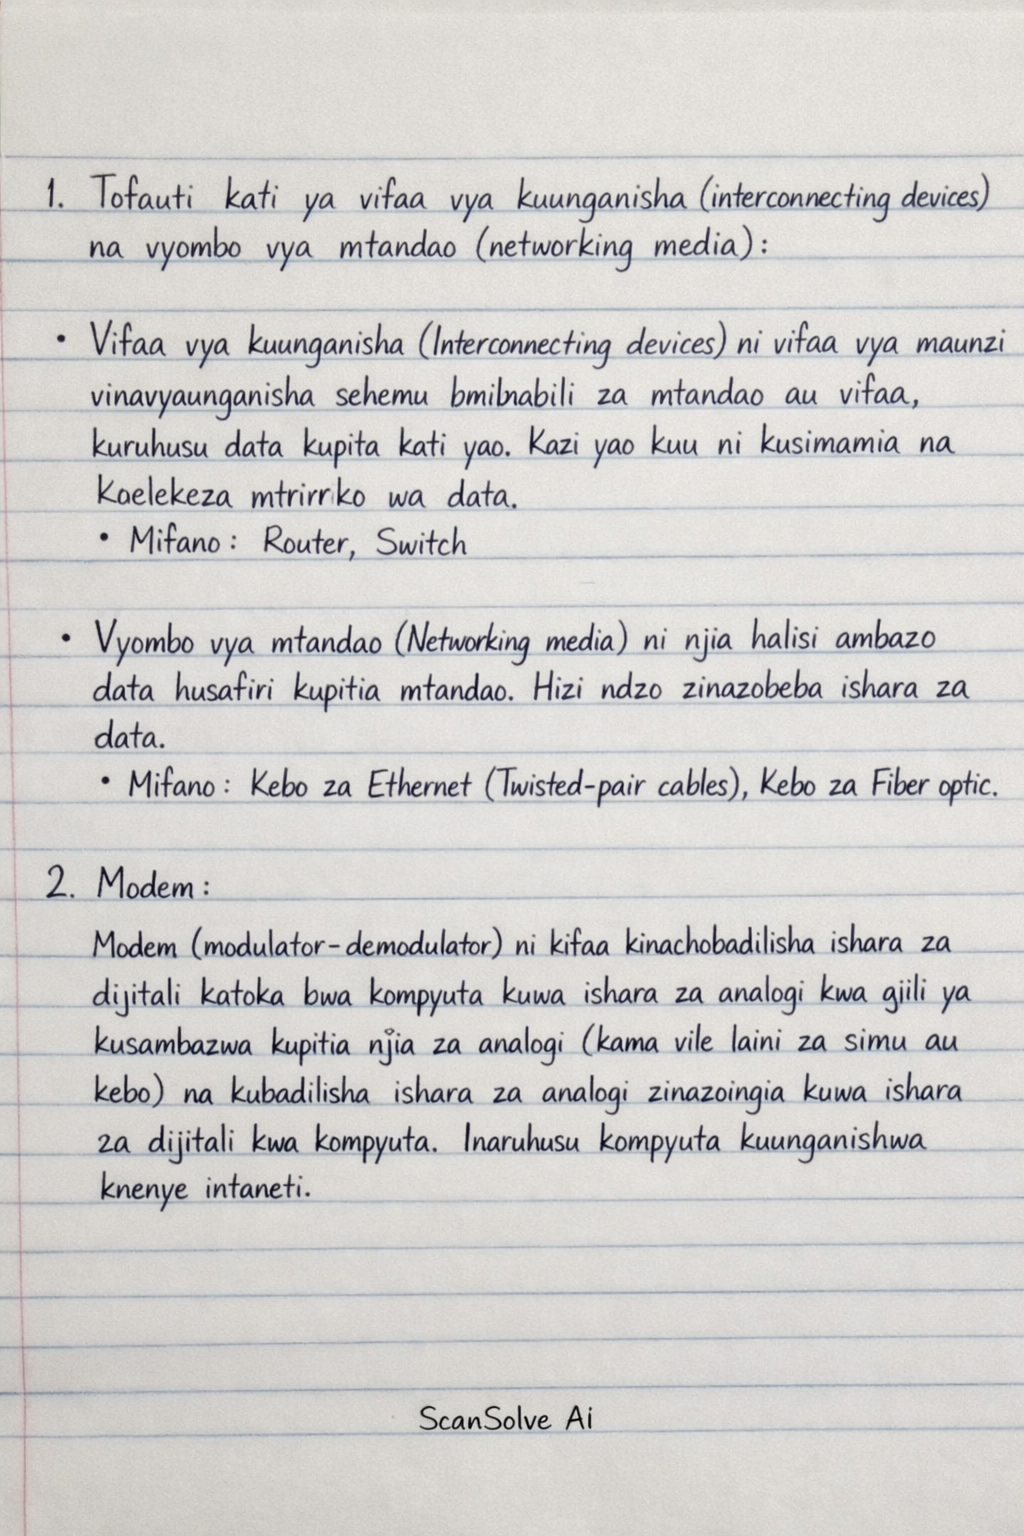 1. Tofauti kati ya vifaa vya kuunganisha (interconnecting devices)
na vyombo vya mtandao (networking media):
• Vifaa vya kuunganisha (Interconnecting devices) ni vifaa vya maunzi
vinavyaunganisha sehemu za mtandao au vifaa,
kuruhusu data kupita kati yao. Kazi yao kuu ni kusimamia na
Koelekeza wa data.
• Mifano: Router, Switch
• Vyombo vya mtandao (Networking media) ni njia halisi ambazo
data husafiri kupitia mtandao. Hizi ndzo zinazobeba ishara za
data.
• Mifano: Kebo za Ethernet (Twisted-pair cables), Kebo za Fiber optic.
2. Modem:
Modem (modulator-demodulator) ni kifaa kinachobadilisha ishara za
dijitali katoka bwa kompyuta kuwa ishara za analogi kwa ya
kusambazwa kupitia njia za analogi (kama vile laini za simu au
kebo) na kubadilisha ishara za analogi zinazoingia kuwa ishara
za dijitali kwa kompyuta. Inaruhusu kompyuta kuunganishwa
knenye intaneti.
ScanSolve Ai